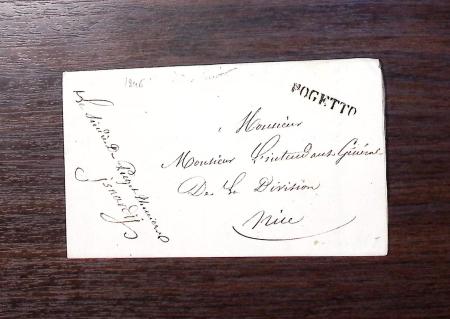 1846
POGETTO
Monsieur
Monsieur L'intendant Général
De La Division
Nice
Le Sindic De